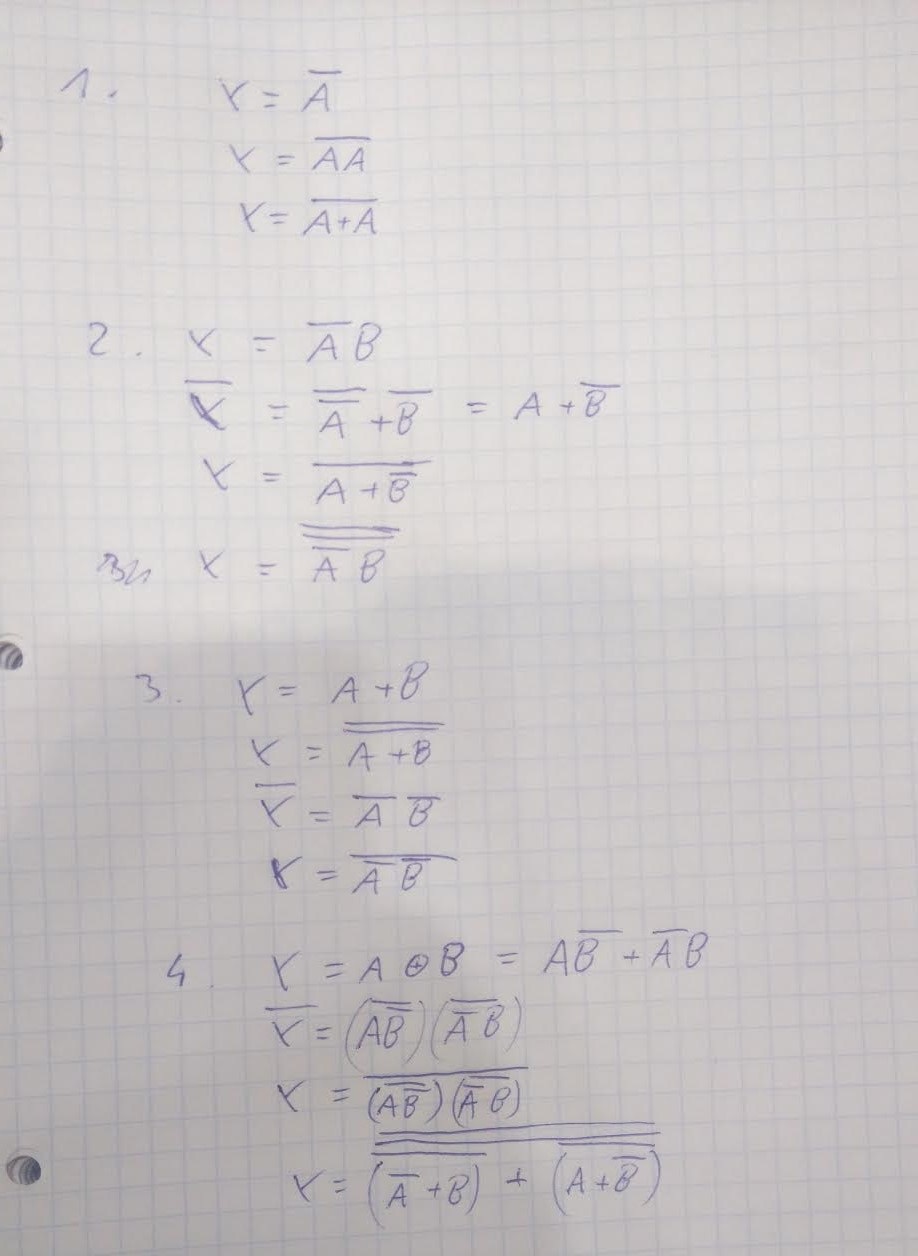 1. Y = A̅
Y = \overline{AA}
Y = \overline{A+A}
2. Y = \overline{A} B
\overline{Y} = \overline{\overline{A}} + \overline{B} = A + \overline{B}
Y = \overline{A + \overline{B}}
Y = \overline{\overline{\overline{A} B}}
3. Y = A + B
Y = \overline{\overline{A + B}}
\overline{Y} = \overline{A} \overline{B}
Y = \overline{\overline{A} \overline{B}}
4. Y = A ⊕ B = A\overline{B} + \overline{A} B
\overline{Y} = (\overline{A\overline{B}}) (\overline{\overline{A} B})
Y = \overline{(\overline{A\overline{B}}) (\overline{\overline{A} B})}
Y = \overline{\overline{(\overline{\overline{A} + B}) + (\overline{A + \overline{B}})}}